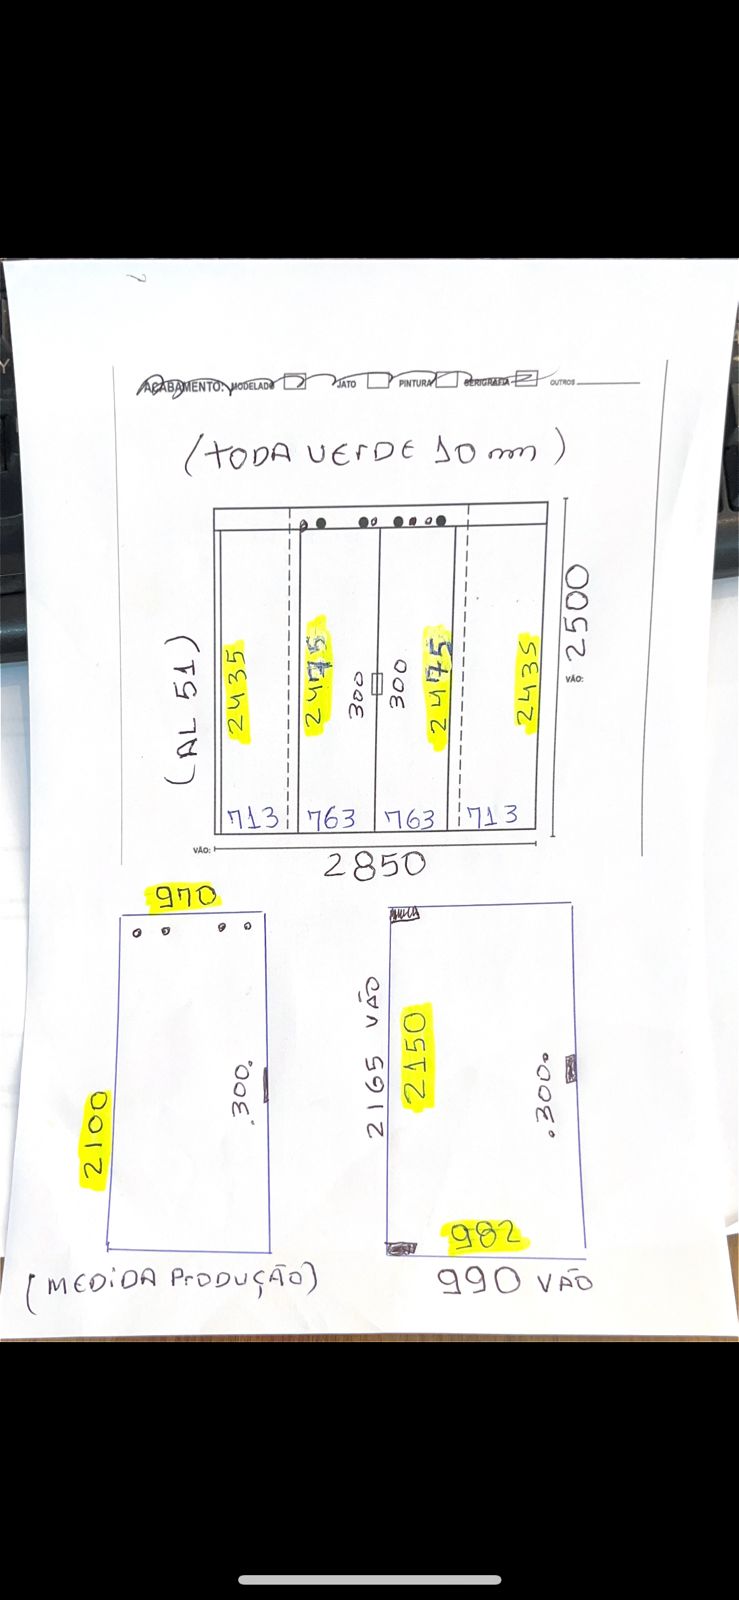 ACABAMENTO: MODELADO JATO PINTURA SERIGRAFIA OUTROS
(TODA VERDE 10 mm)
(AL 51)
2435
2475
300
300
2475
2435
VÃO: 2500
713 763 763 713
VÃO:
2850
970
2100
.300.
(MEDIDA PRODUÇÃO)
2165 VÃO
2150
.300.
982
990 VÃO